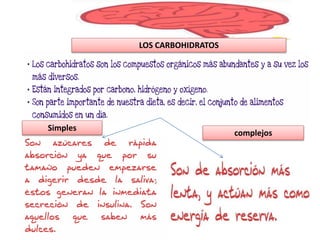 LOS CARBOHIDRATOS
• Los carbohidratos son los compuestos orgánicos más abundantes y a su vez los
más diversos.
• Están integrados por carbono, hidrógeno y oxígeno.
• Son parte importante de nuestra dieta, es decir, el conjunto de alimentos
consumidos en un día.
Simples
Son azúcares de rápida
absorción ya que por su
tamaño pueden empezarse
a digerir desde la saliva;
éstos generan la inmediata
secreción de insulina. Son
aquellos que saben más
dulces.
complejos
Son de absorción más
lenta, y actúan más como
energía de reserva.